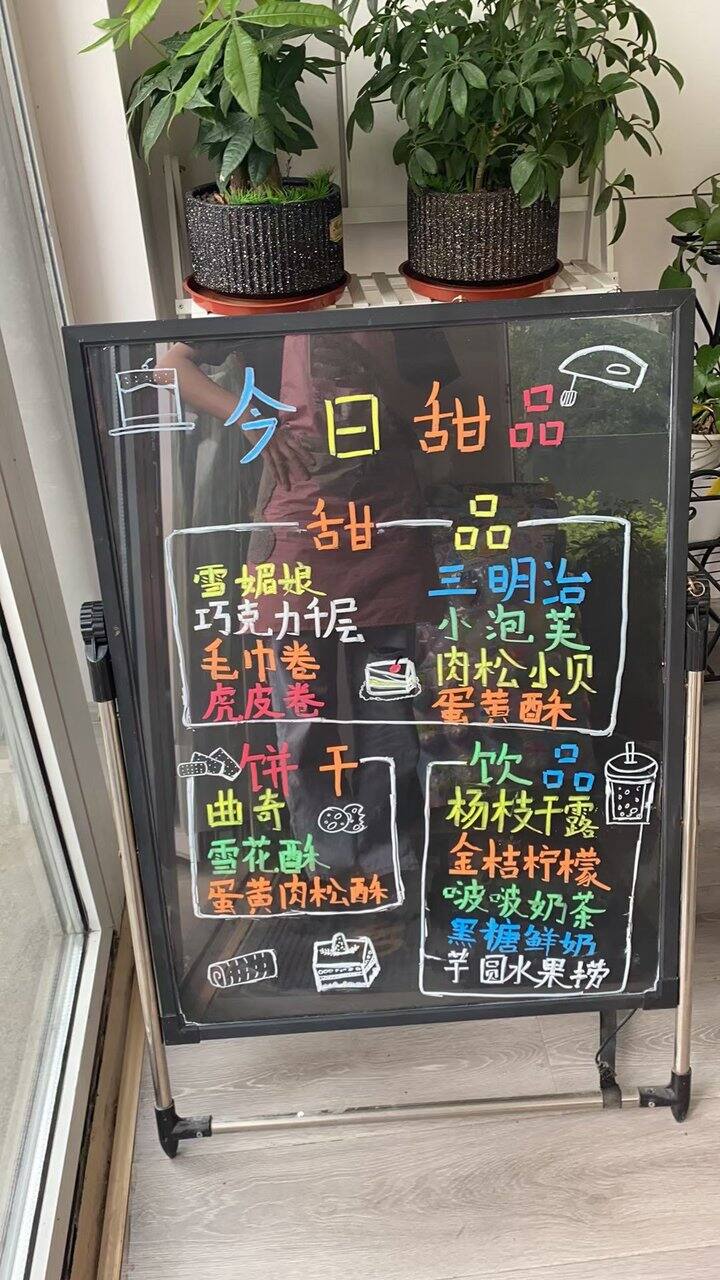 今日甜品
甜品
雪媚娘
巧克力千层
毛巾卷
虎皮卷
三明治
小泡芙
肉松小贝
蛋黄酥
饼干
曲奇
雪花酥
蛋黄肉松酥
饮品
杨枝干露
金桔柠檬
啵啵奶茶
黑糖鲜奶
芋圆水果捞